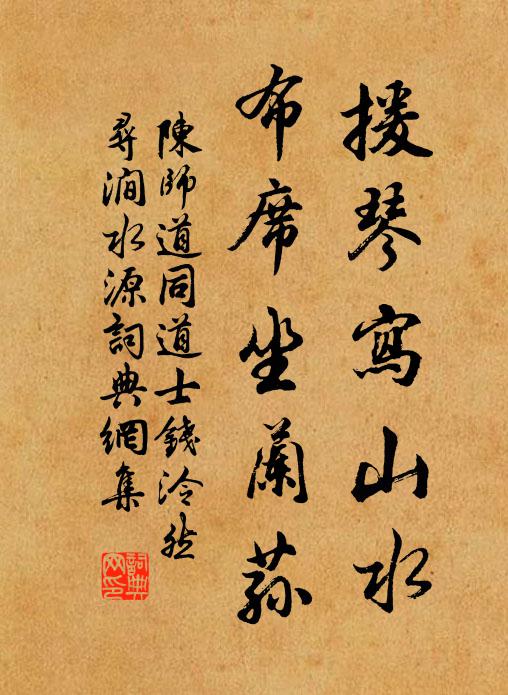 援琴寫山水
布席坐蘭蓀
陳師道同道士錢泠然
尋澗水源詞典網集
詞典
网印